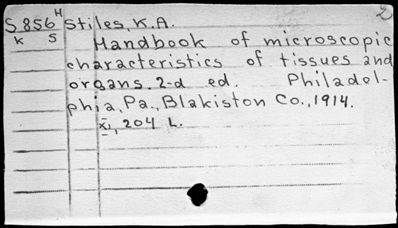 S 856 H Stiles, K.A. 2
K S Handbook of microscopic
characteristics of tissues and
organs. 2-d ed. Philadel-
phia, Pa., Blakiston Co., 1914.
xi, 204 L.